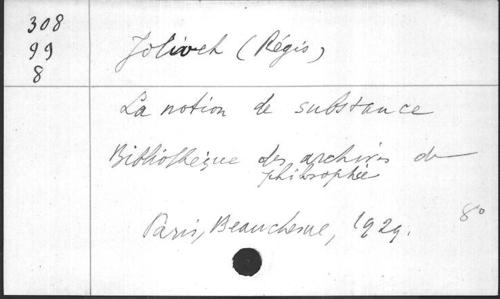 308
99
8
Jolivet (Régis)
La notion de substance
Bibliothèque des archives de
philosophie
Paris, Beauchesne, 1929. 8°